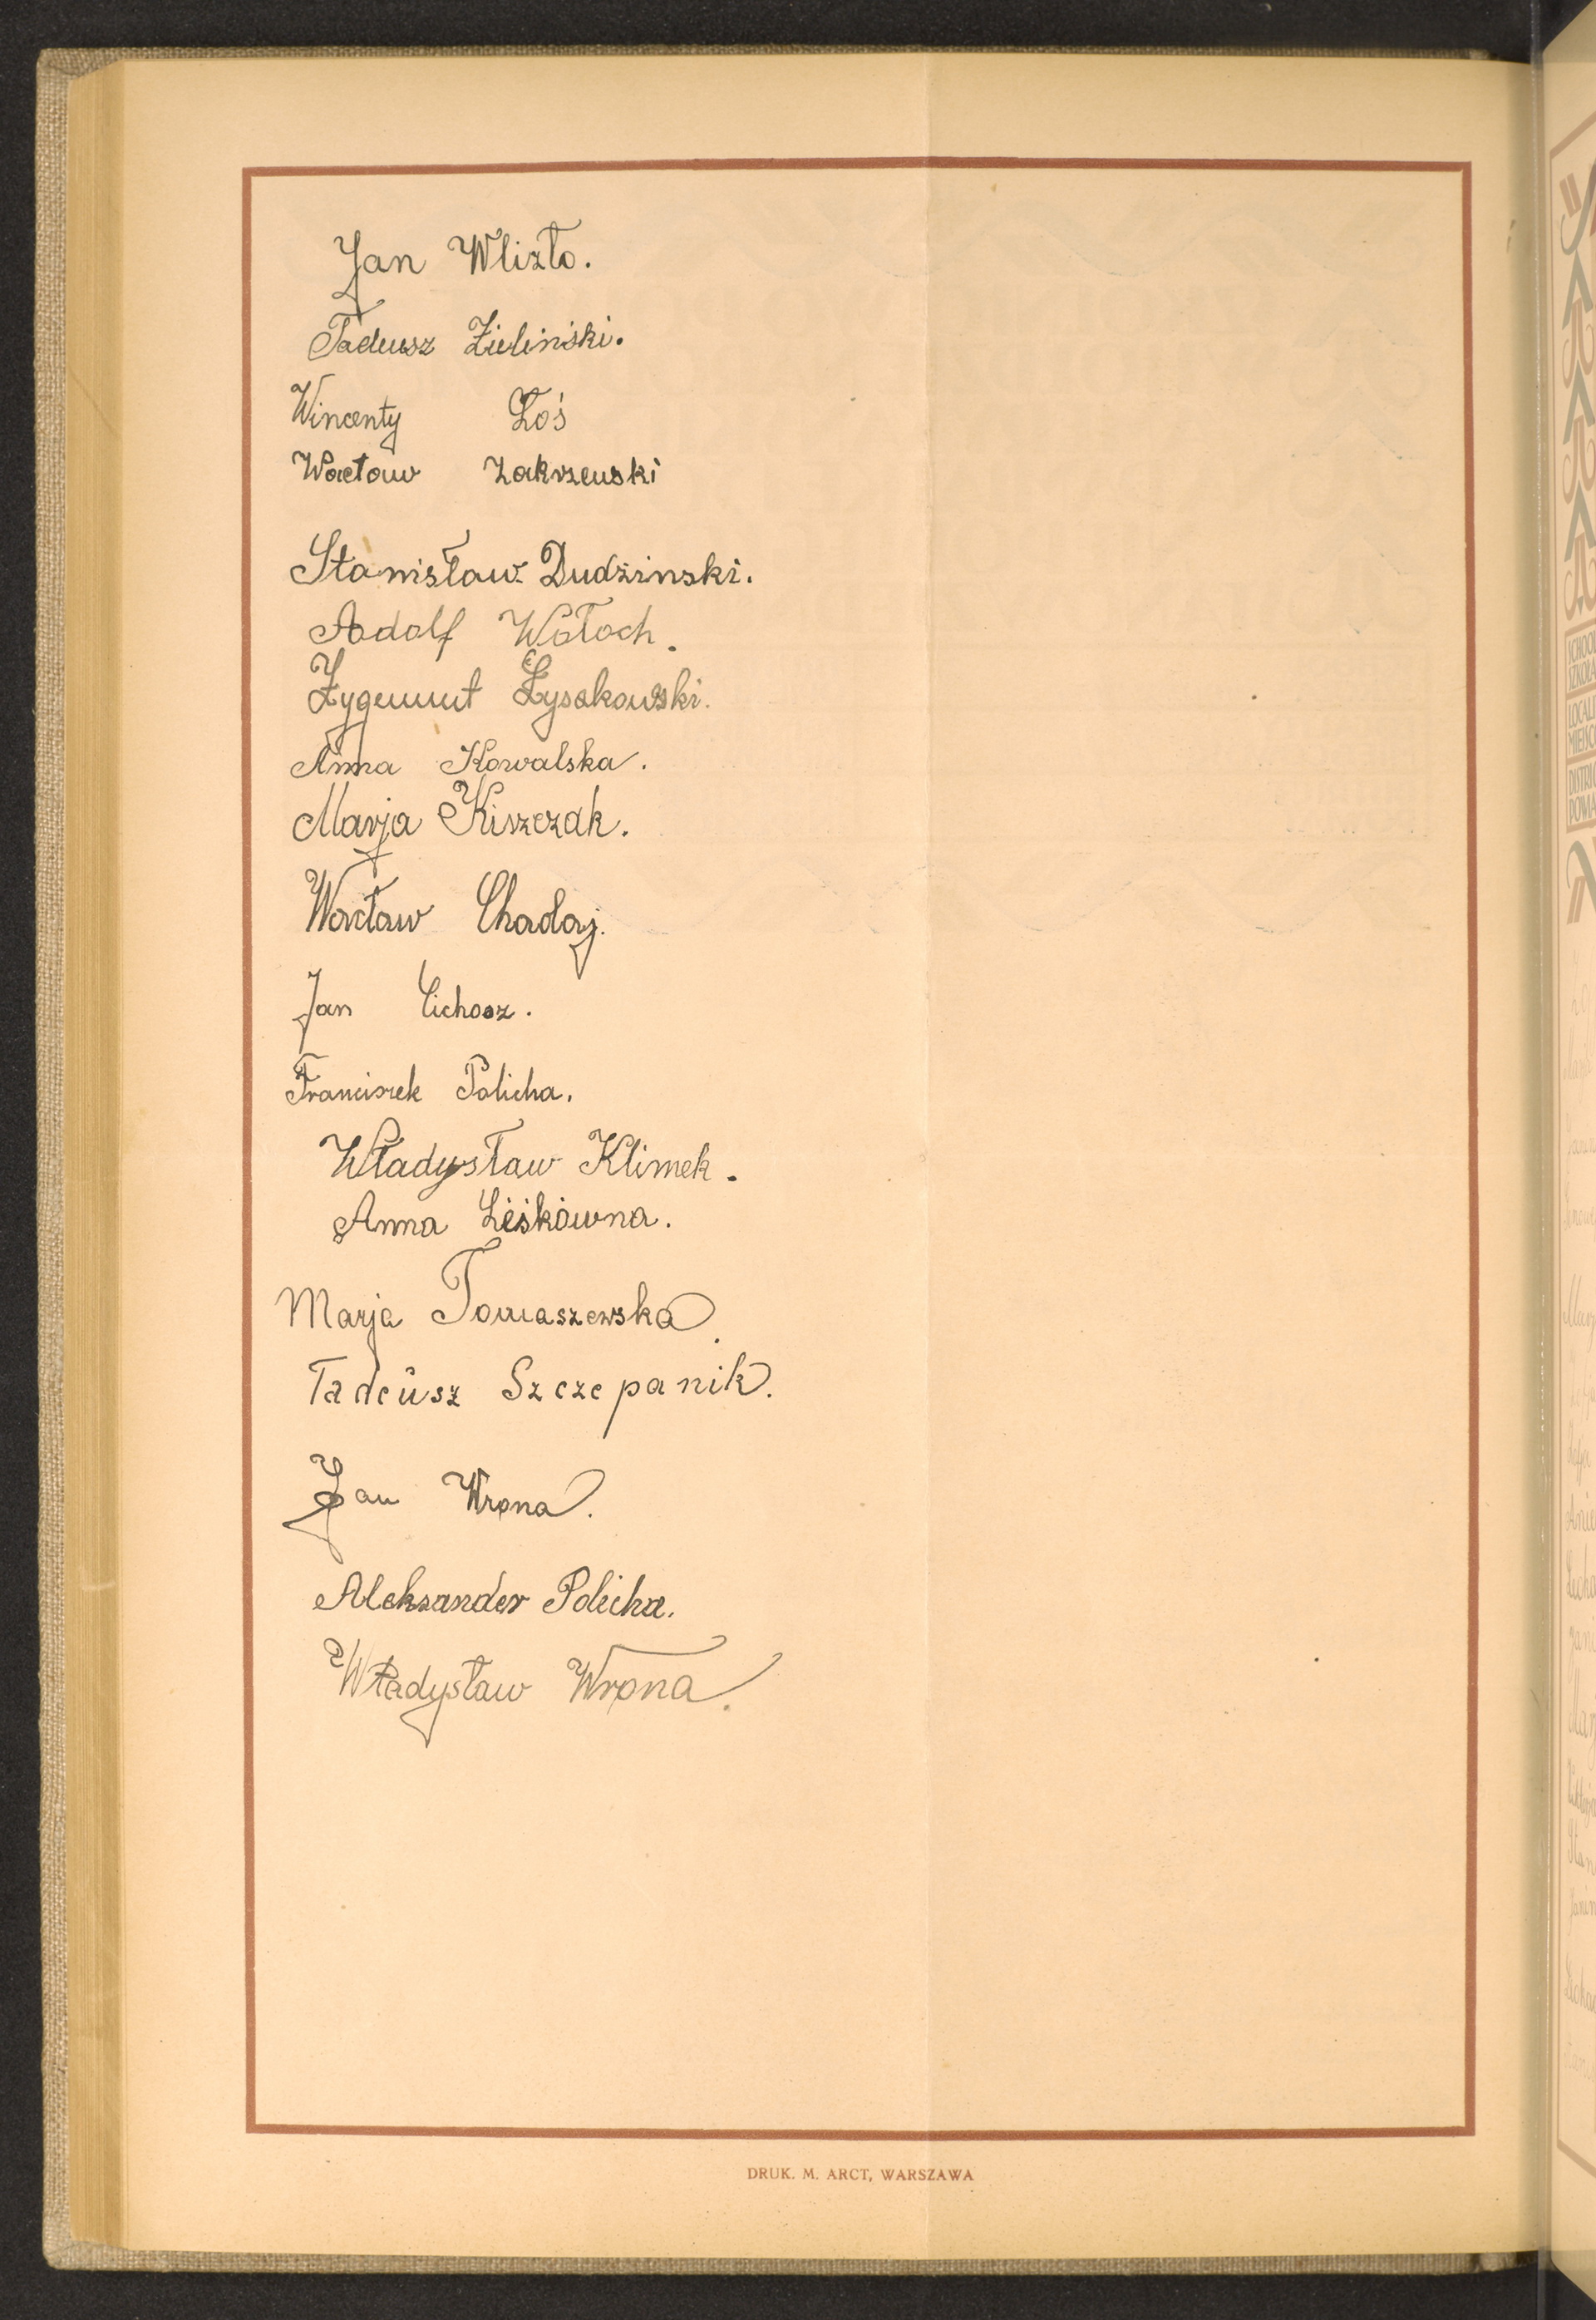 Jan Wlizło.
Tadeusz Zieliński.
Wincenty Łoś
Wacław Zakrzewski
Stanisław Dudzinski.
Adolf Wołoch.
Zygmunt Łysakowski.
Anna Kowalska.
Marja Kiszczak.
Wacław Chadaj.
Jan Cichosz.
Franciszek Policha.
Władysław Klimek.
Anna Liśkówna.
Marja Tomaszewska.
Tadeusz Szczepanik.
Jan Wrona.
Aleksander Policha.
Władysław Wrona.
DRUK. M. ARCT, WARSZAWA